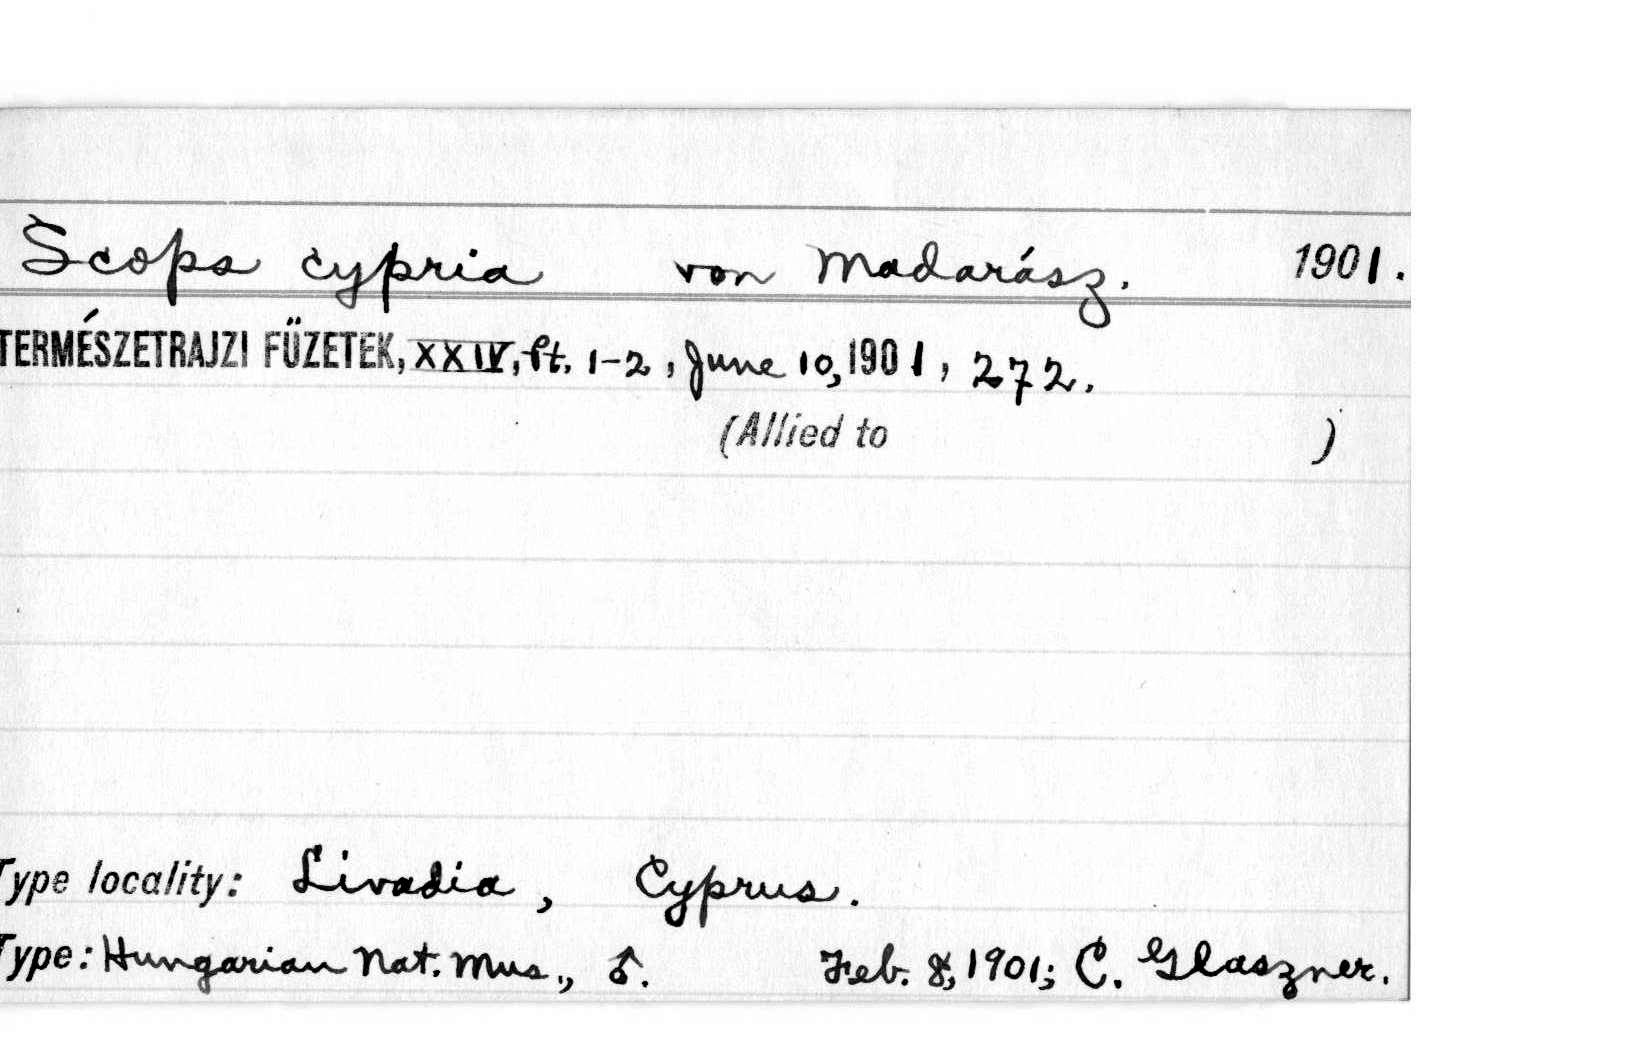 Scops cypria von Madarász. 1901.
TERMÉSZETRAJZI FÜZETEK, XXIV, Pt. 1-2, June 10, 1901, 272.
(Allied to )
Type locality: Livadia, Cyprus.
Type: Hungarian Nat. Mus., ♂. Feb. 8, 1901; C. Glaszner.